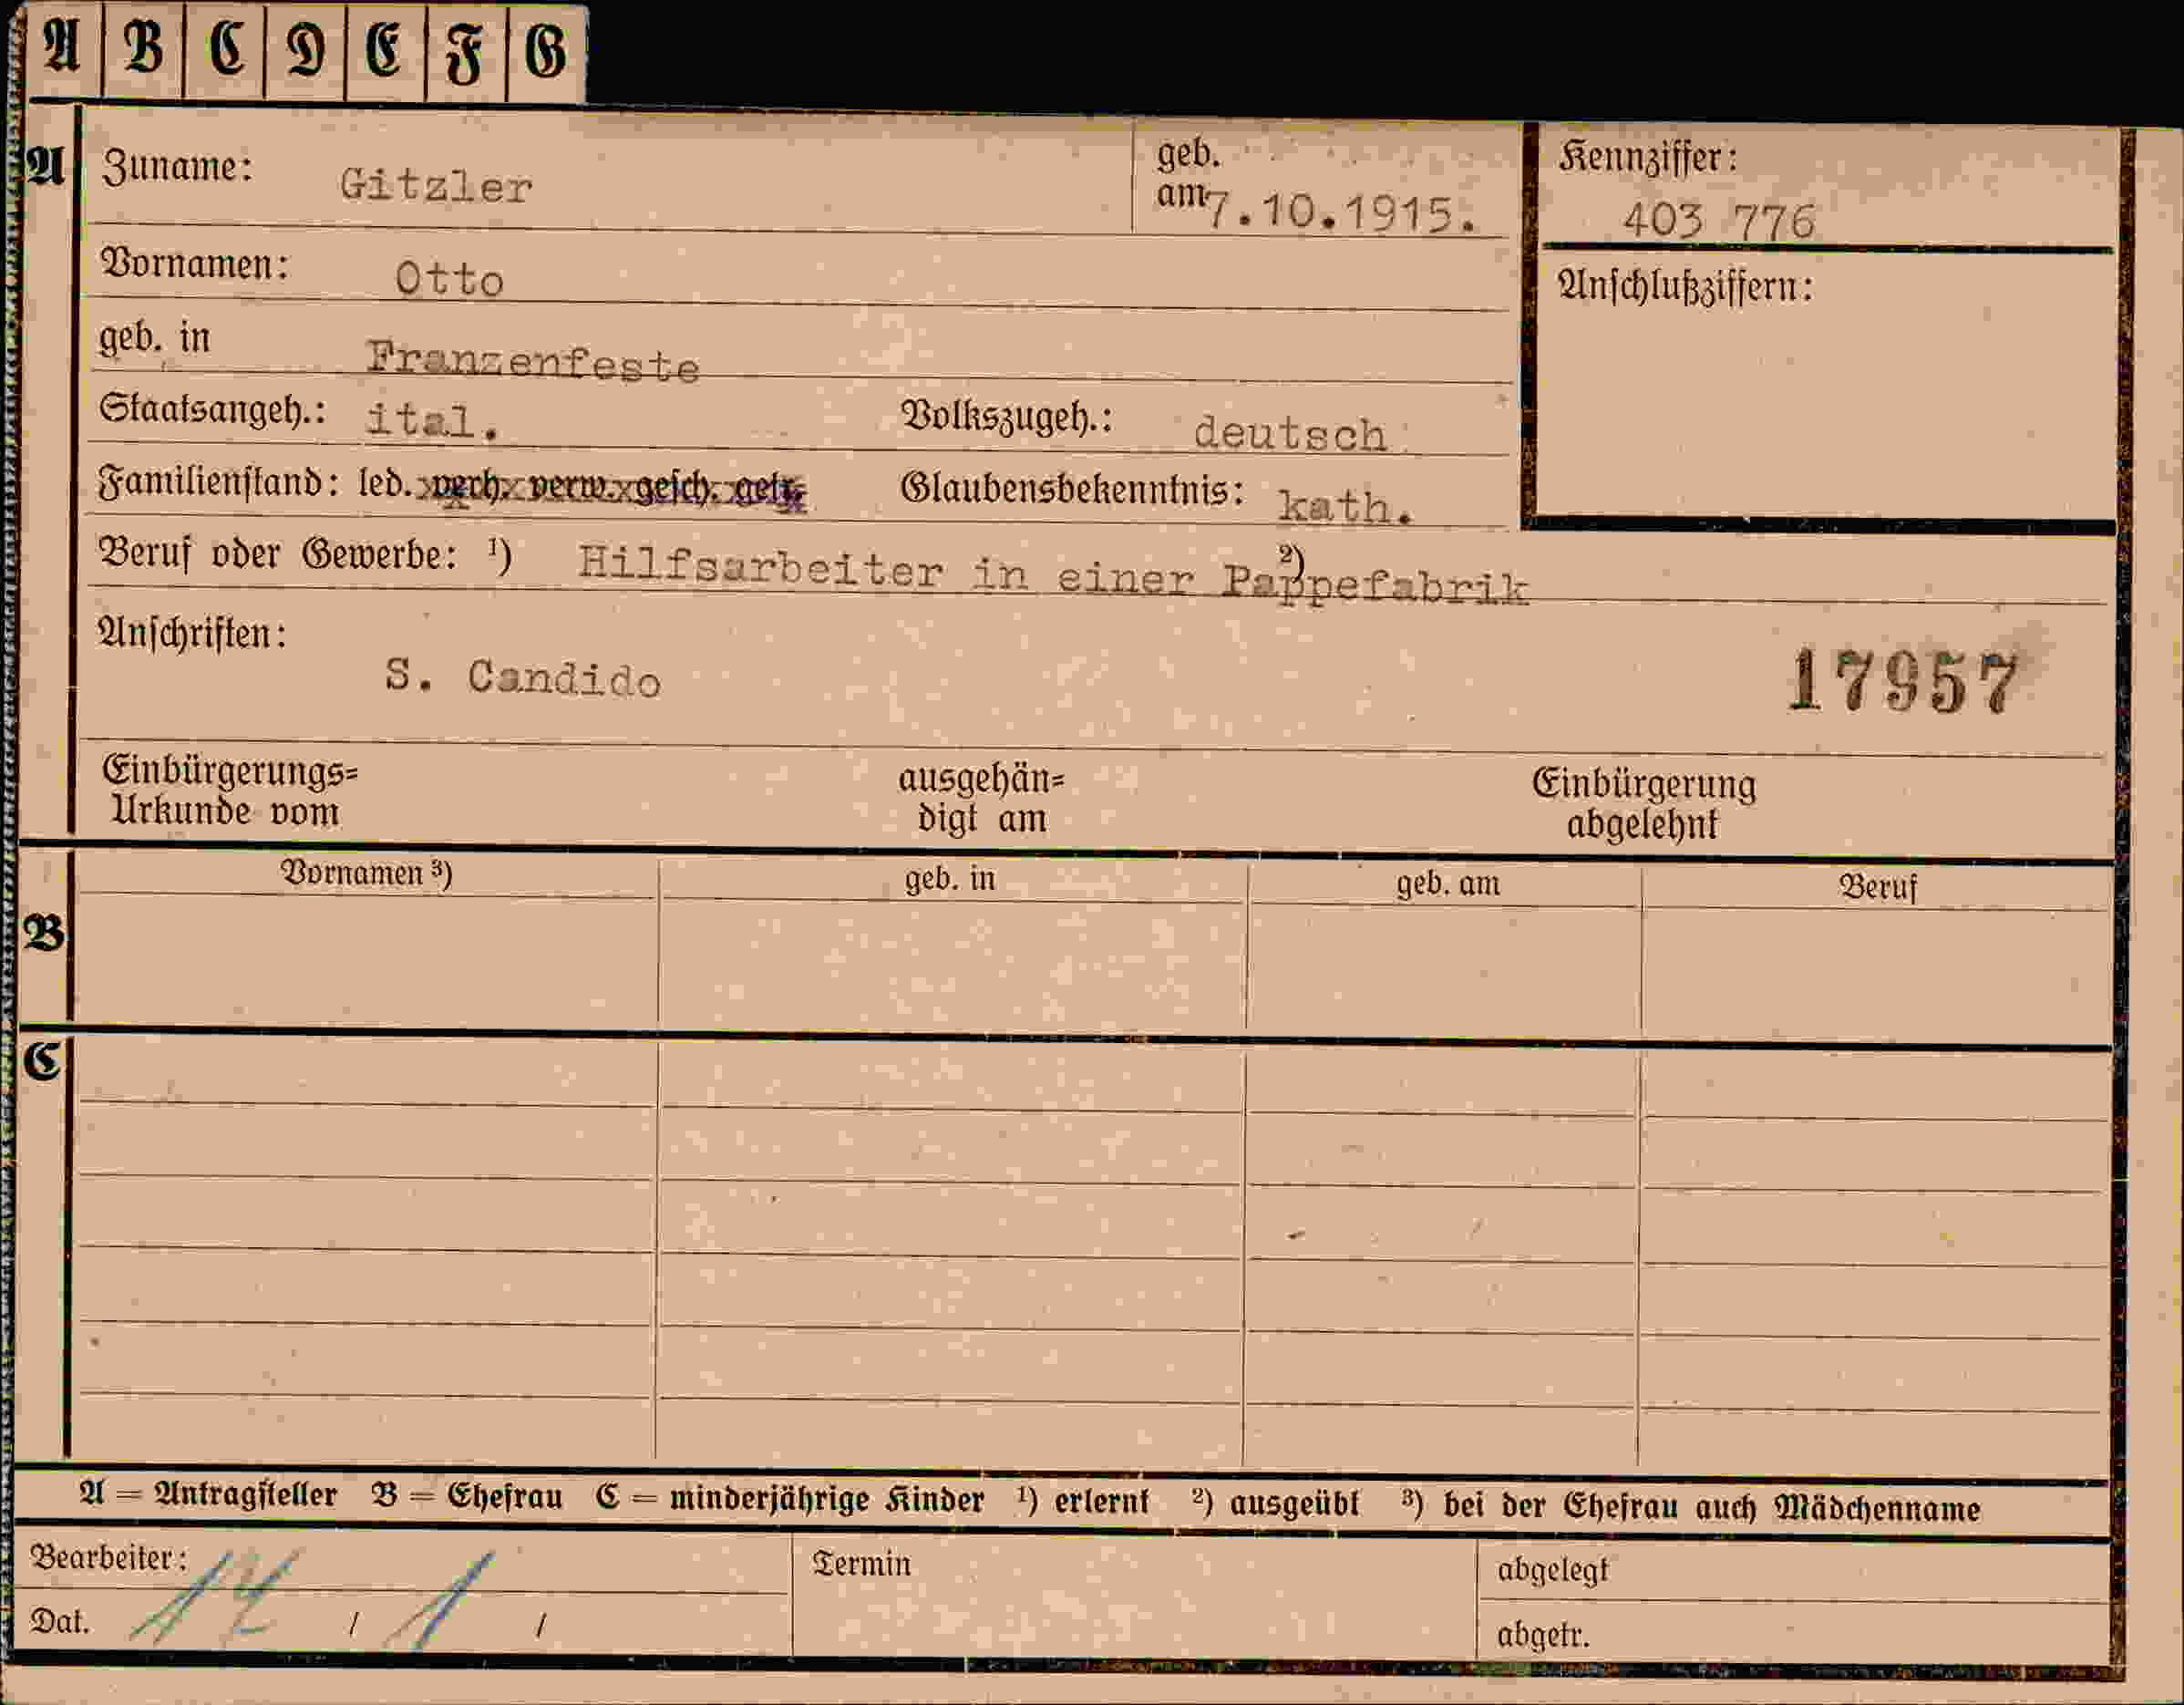 A B C D E F G
A Zuname: Gitzler geb. am 7.10.1915. Kennziffer: 403 776
Vornamen: Otto Anschlußziffern:
geb. in Franzenfeste
Staatsangeh.: ital. Volkszugeh.: deutsch
Familienstand: led. verh. verw. gesch. getr. Glaubensbekenntnis: kath.
Beruf oder Gewerbe: ¹) Hilfsarbeiter in einer Pappefabrik ²)
Anschriften:
S. Candido 17957
Einbürgerungs= ausgehän= Einbürgerung
Urkunde vom digt am abgelehnt
Vornamen ³) geb. in geb. am Beruf
B
C
A = Antragsteller B = Ehefrau C = minderjährige Kinder ¹) erlernt ²) ausgeübt ³) bei der Ehefrau auch Mädchenname
Bearbeiter: Termin abgelegt
Dat. / / abgetr.